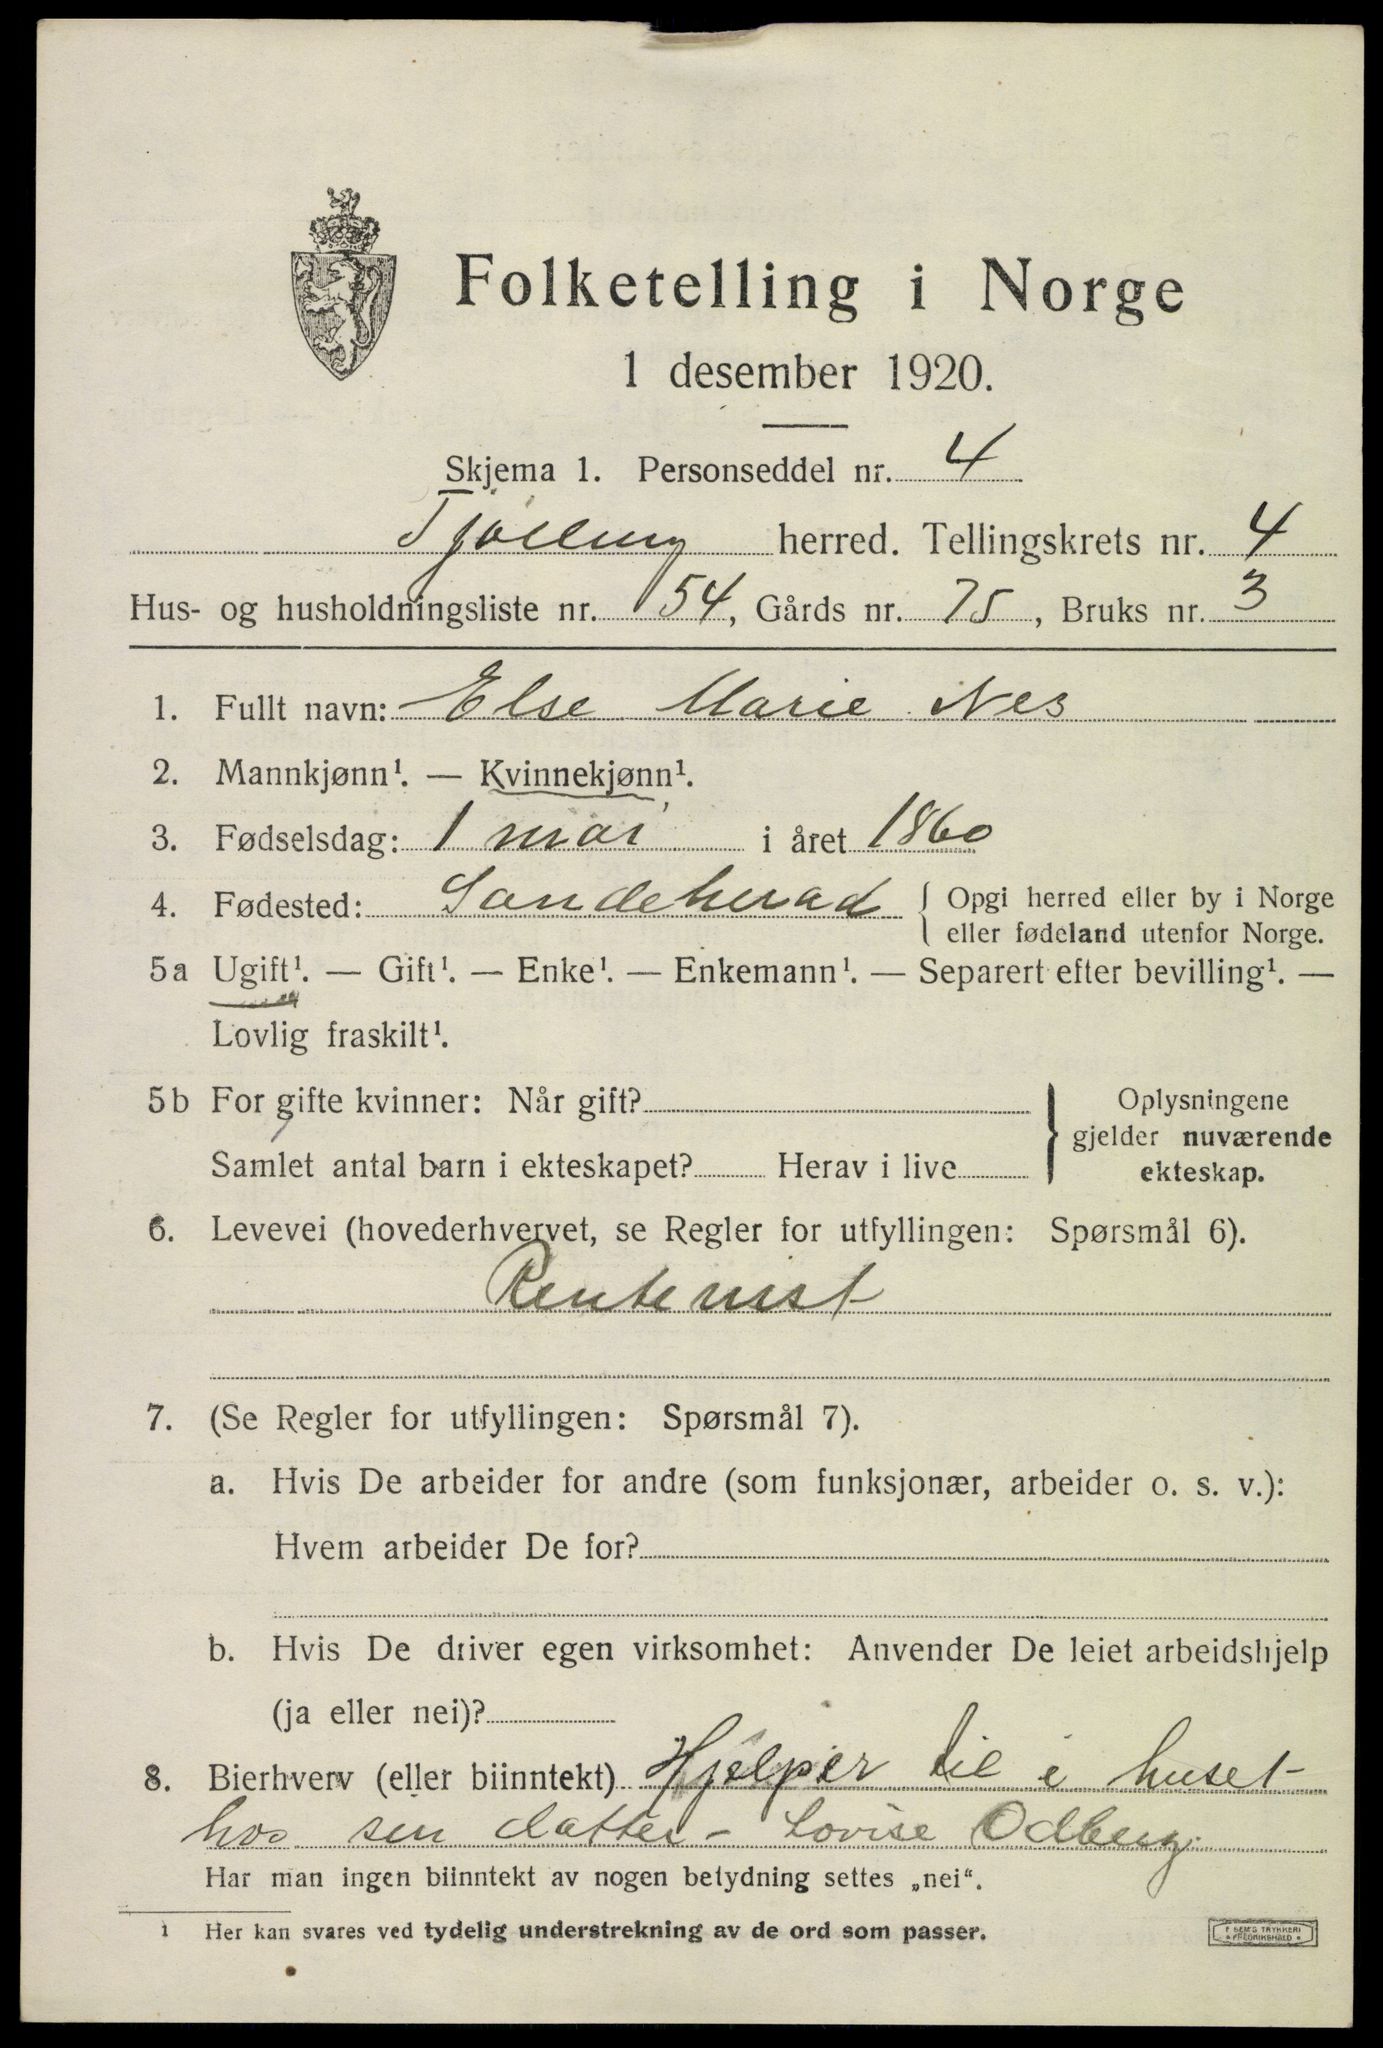 Folketelling i Norge
1 desember 1920.
Skjema 1. Personseddel nr. 4
Tjølling herred. Tellingskrets nr. 4
Hus- og husholdningsliste nr. 54, Gårds nr. 75, Bruks nr. 3
1. Fullt navn: Else Marie Nes
2. Mannkjønn¹. — Kvinnekjønn¹.
3. Fødselsdag: 1 mai i året 1860
4. Fødested: Sandeherad { Opgi herred eller by i Norge
eller fødeland utenfor Norge.
5a Ugift¹. — Gift¹. — Enke¹. — Enkemann¹. — Separert efter bevilling¹. —
Lovlig fraskilt¹.
5b For gifte kvinner: Når gift?
Samlet antal barn i ekteskapet? Herav i live
} Oplysningene
gjelder nuværende
ekteskap.
6. Levevei (hovederhvervet, se Regler for utfyllingen: Spørsmål 6).
Rentenist
7. (Se Regler for utfyllingen: Spørsmål 7).
a. Hvis De arbeider for andre (som funksjonær, arbeider o. s. v.):
Hvem arbeider De for?
b. Hvis De driver egen virksomhet: Anvender De leiet arbeidshjelp
(ja eller nei)?
8. Bierhverv (eller biinntekt) Hjelper til i huset
hos sin datter - Lovise Odberg.
Har man ingen biinntekt av nogen betydning settes „nei“.
1 Her kan svares ved tydelig understrekning av de ord som passer.
F SEM'S TRYKKERI
* FREDRIKSHALD *